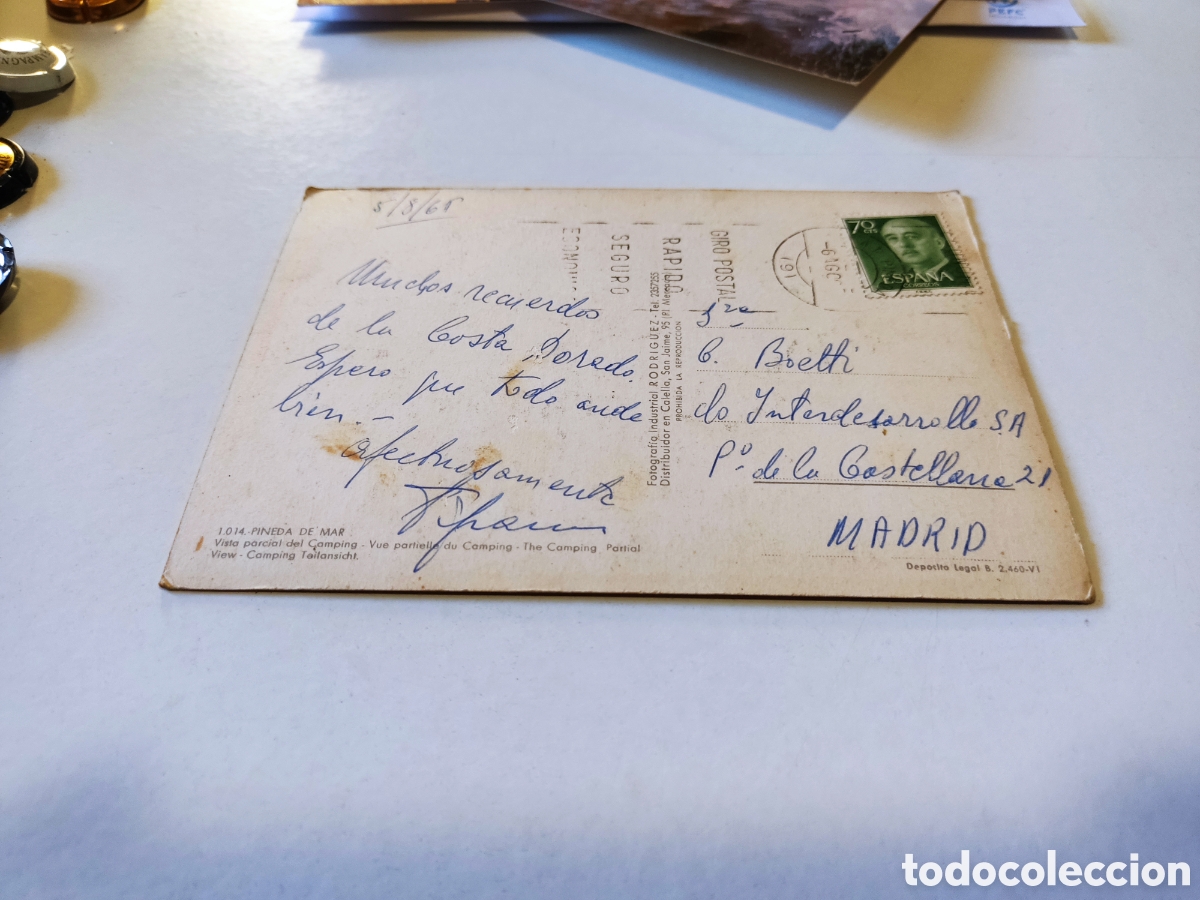 5/8/65
Muchos recuerdos
de la Costa Dorada.
Espero que todo ande
bien.-
afectuosamente
1.014.-PINEDA DE MAR
Vista parcial del Camping - Vue partielle du Camping - The Camping Partial
View - Camping Teilansicht.
ECONOMI
SEGURO
RAPIDO
GIRO POSTAL
Fotografía Industrial RODRIGUEZ - Tel. 2357255
Distribuidor en Calella, San Jaime, 95 (P.)
PROHIBIDA LA REPRODUCCION
-6 AGO
191
70 CTS
ESPAÑA
CORREOS
Sra
C. Boetti
c/o Interdesarrollo SA
Pº de la Castellana 21
MADRID
Deposito Legal B. 2.460-VI
PEFC
todocoleccion